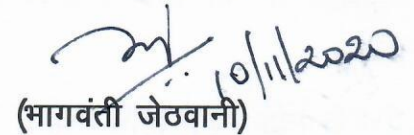 10/11/2020
(भागवंती जेठवानी)